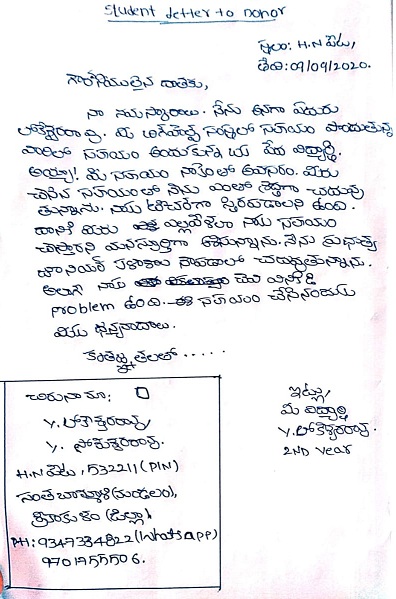 Student Letter to Donor
స్థలం: H.N పేట,
తేది: 09/09/2020.
గౌరవనీయులైన దాతకు,
నా నమస్కారాలు. నేను అనగా
లోకేశ్వరరావు. మీ సంస్థలో సహయం పొందుతున్న
వారిలో సహయం అందుకున్న ఒక పేద విద్యార్థి.
అయ్యా! మీ సహయం నాకెంతో అవసరం. మీరు
చేసిన సహయంలో నేను ఎంతో శ్రద్ధగా చదువు
తున్నాను. నాకు టీచర్‌గా స్థిరపడాలని ఉంది.
దానికి మీరు ఎల్లవేళలా నాకు సహయం
చేస్తారని మనస్ఫూర్తిగా ఆశిస్తున్నాను. నేను
జూనియర్ కళాశాల చదువుతున్నాను.
అలాగే నాకు
problem ఉంది. ఈ సహయం చేసినందుకు
మీకు ధన్యవాదాలు.
కృతజ్ఞతలతో .....
ఇట్లు,
మీ విద్యార్థి
Y. లోకేశ్వరరావు.
2ND Year
చిరునామా:
Y. లోకేశ్వరరావు,
Y. సోమేశ్వరరావు.
H.N పేట, 532211 (PIN)
సంతబొమ్మాళి (మండలం),
శ్రీకాకుళం (జిల్లా).
PH: 9347334822 (Whatsapp)
9701755506.